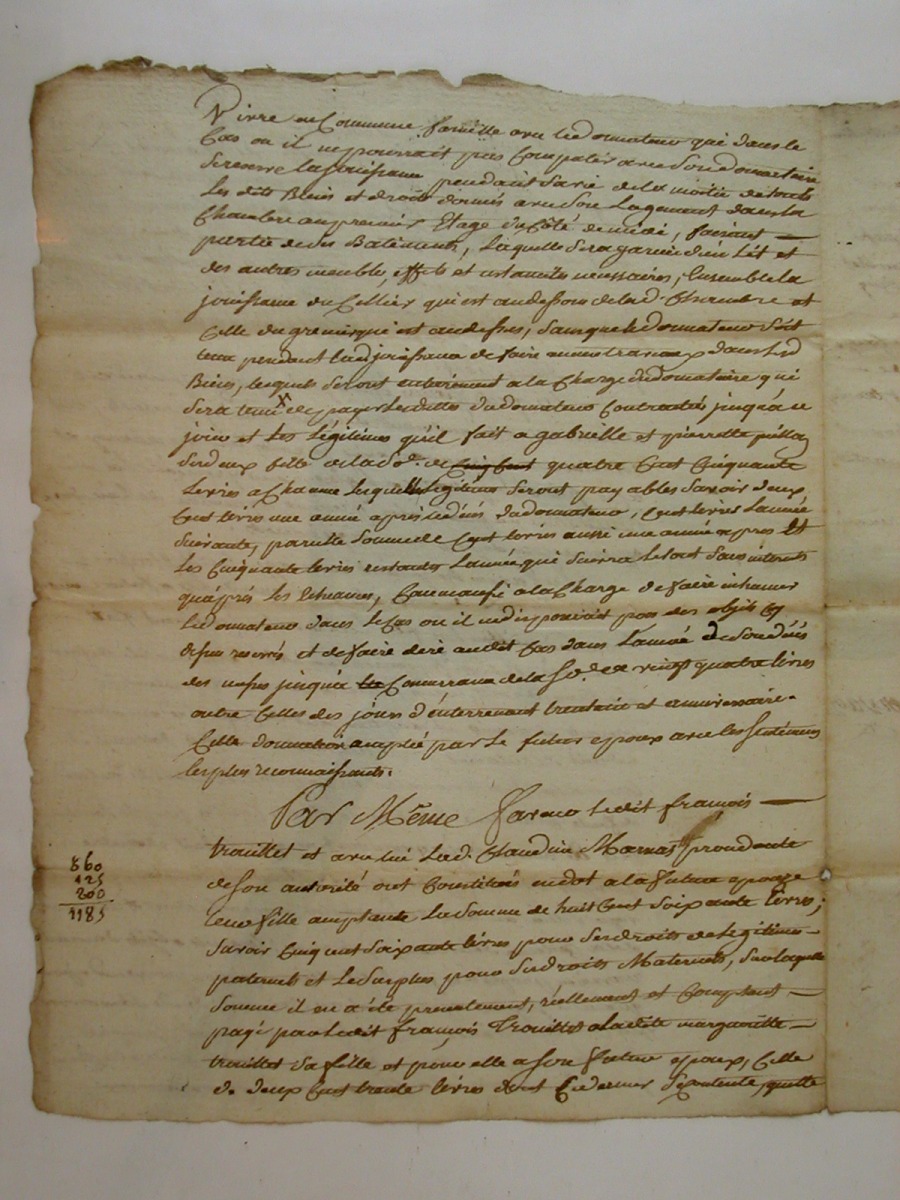 Vivre en Commune famille avec le donnateur qui dans le
Cas ou il ne pourrait pas Compatir avec Son donnataire
Se reserve la jouissance pendant Sa vie de la moitié de touts
Les dits Biens et droits donnés avec Son Logement dans la
Chambre au premier Etage du Côté de midi, faisant
partie de des Batiments, Laquelle Sera garnie d'un Lit et
des autres meubles, effets et ustanciles necessaires, Ensemble la
jouissance du Cellier qui est au dessous de lad. Chambre et
Celle du grenier qui est au dessus, Sans que le donnateur Soit
tenu pendant lad jouissance de faire aucuns travaux dans Lesd
Biens, lesquels Seront entierement a la Charge du donnataire qui
Sera tenu de payer Les dettes du donnateur Contractés jusqu'a ce
jour et Les Légitimes qu'il fait a gabrielle et pierrette
Ses deux fille de la So. de Cinq Cent quatre Cent Cinquante
Livres a Chacune Lesquelles Legitimes Seront payables Savoir deux
Cent livres une année après le décés du donnateur, Cent livres L'année
Suivante, pareille Somme de Cent livres aussi une année apres Et
Les Cinquante livres restantes L'année qui Suivra le tout Sans interets
qu'après Les Echeances, Comme aussi a la Charge de faire inhumer
Le donnateur dans Le Cas ou il ne disposerait pas des objets Cy
dessus reservés et de faire dire audit Cas dans L'année de Son décés
des messes jusqu'a la Concurrance de la So. de vingt quatre livres
outre Celles des jours d'enterrement trentain et anniversaire.
Cette donnation acceptée par Le futur epoux avec les Sentimens
les plus reconnaissants.
Par Même faveur Ledit françois
trouillet et avec lui Lad. Claudine Marnas procedante
de Son autorité ont Constitués en dot a la future epouze
Leur fille acceptante La Somme de huit Cent Soixante livres;
860
125
200
1185
Savoir Cinq cent Soixante livres pour Ses droits de Legitimes
paternels et Le Surplus pour Ses droits Maternels, Sur laquelle
Somme il en a été presentement, réellement et Comptant
payé par Ledit françois Trouillet a ladite marguerite
trouillet Sa fille et pour elle a Son futur epoux, Celle
de deux Cent trente livres dont Ce dernier Se Contente, quitte